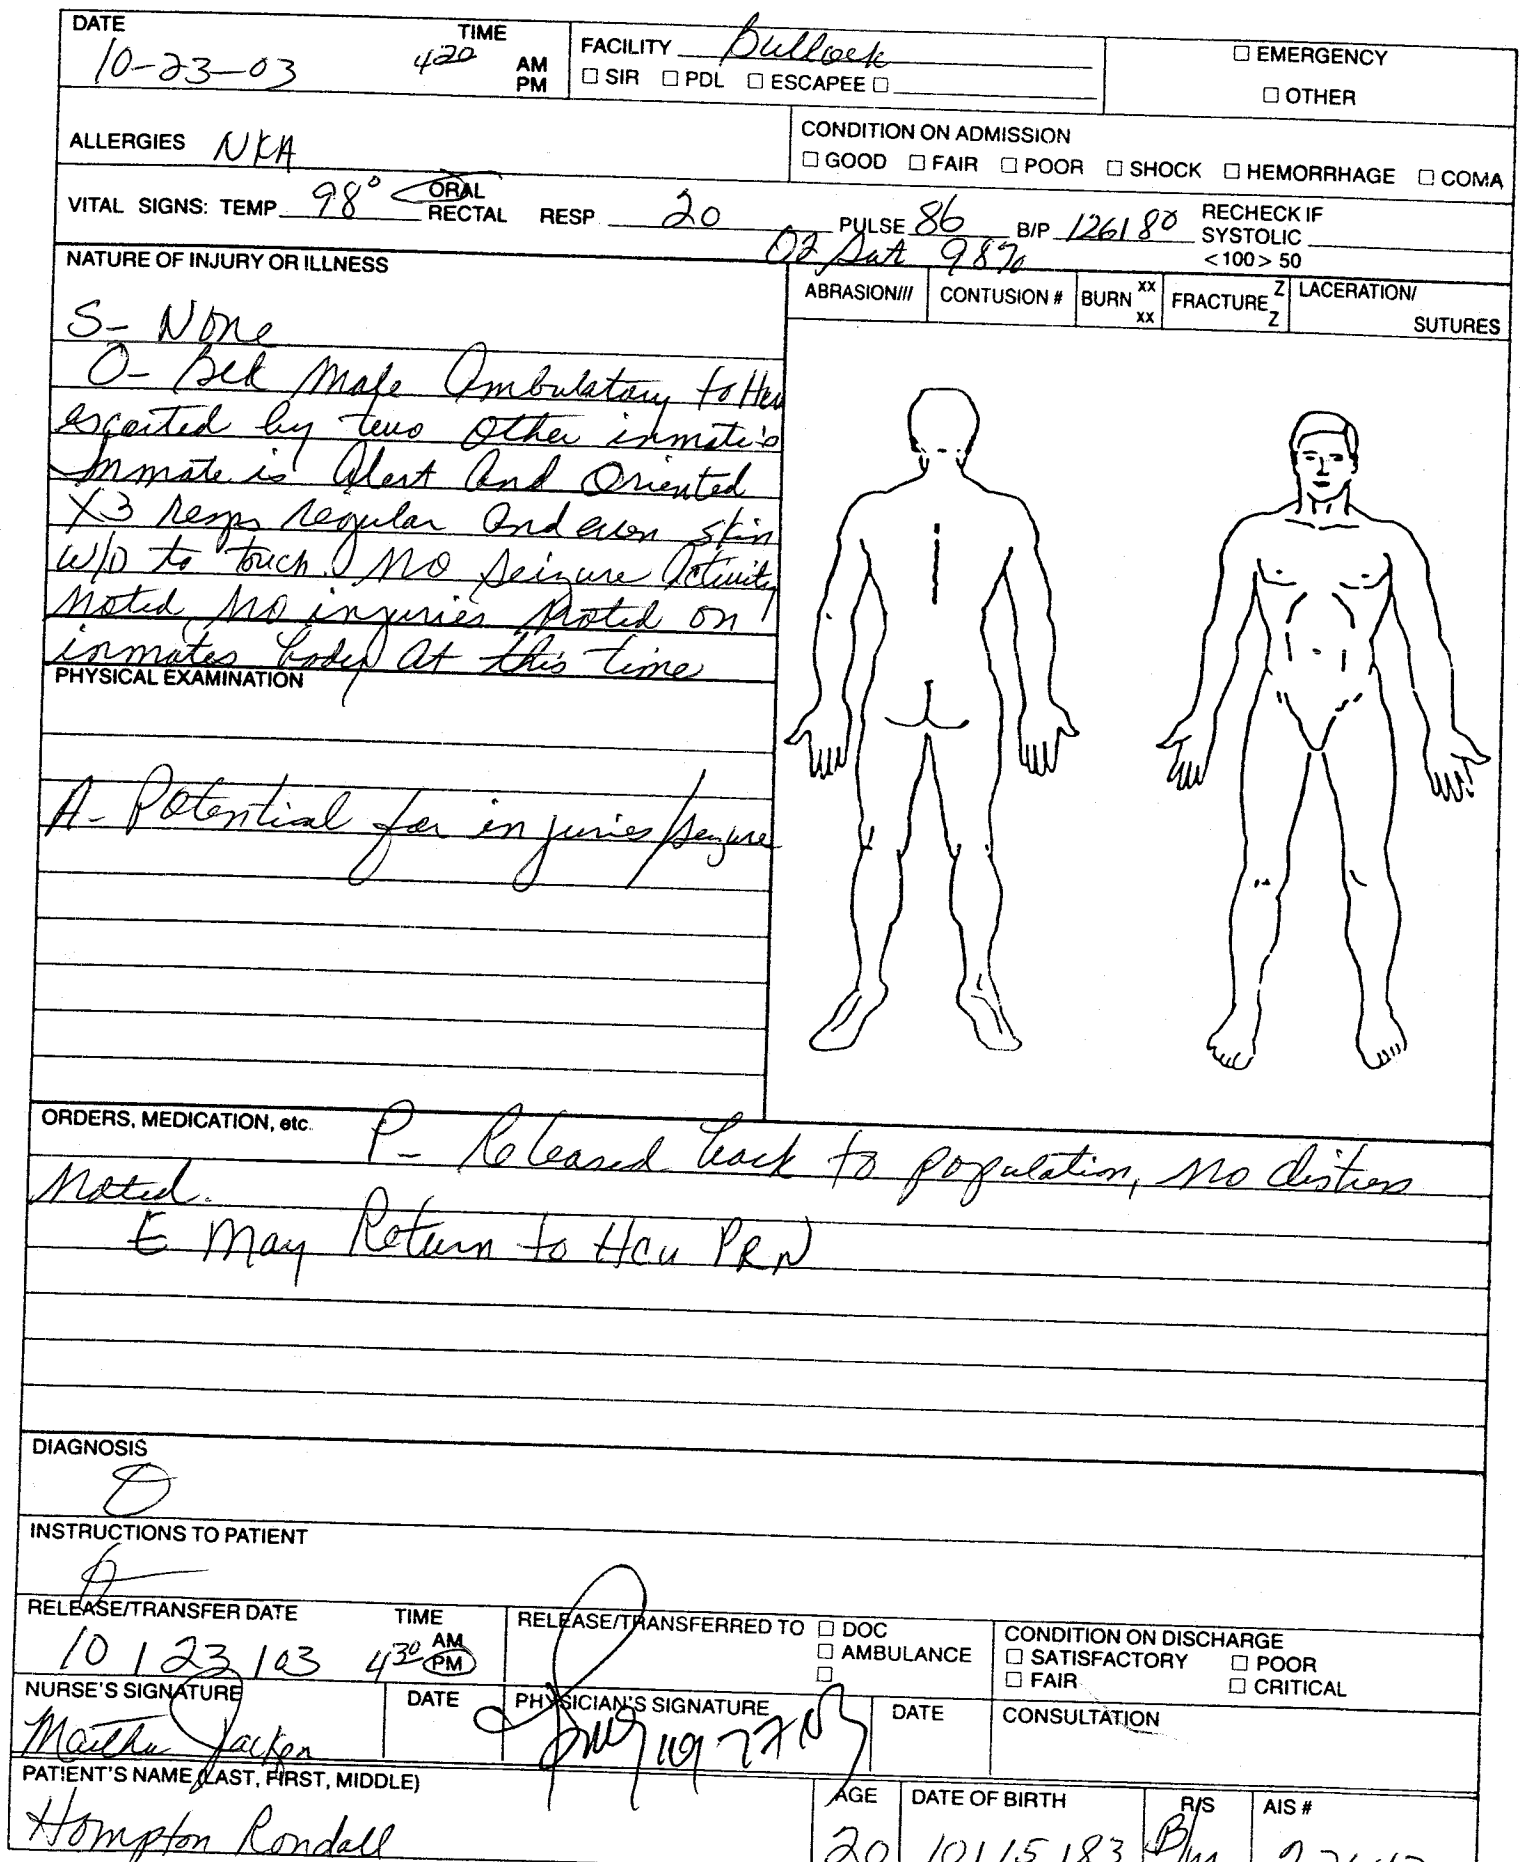 DATE TIME FACILITY Bullock ☐ EMERGENCY
10-23-03 4 20 AM PM ☐ SIR ☐ PDL ☐ ESCAPEE ☐ ☐ OTHER
ALLERGIES NKA CONDITION ON ADMISSION
☐ GOOD ☐ FAIR ☐ POOR ☐ SHOCK ☐ HEMORRHAGE ☐ COMA
VITAL SIGNS: TEMP 98° ORAL RECTAL RESP. 20 PULSE 86 B/P 126/80 RECHECK IF SYSTOLIC <100> 50
O2 Sat 98%
NATURE OF INJURY OR ILLNESS
ABRASION/// CONTUSION # BURN xx xx FRACTURE Z Z LACERATION/ SUTURES
S- None
O- Blk male Ambulatory to Hcu
escorted by two other inmate's
Inmate is Alert And Oriented
X3 resps regular and even skin
W/D to touch. No seizure Activity
noted, No injuries noted on
inmates body At this time
PHYSICAL EXAMINATION
A- Potential for injuries/seizure
ORDERS, MEDICATION, etc. P- Released back to population, no distress
noted.
E May Return to Hcu PRN
DIAGNOSIS
INSTRUCTIONS TO PATIENT
RELEASE/TRANSFER DATE TIME RELEASE/TRANSFERRED TO ☐ DOC CONDITION ON DISCHARGE
10 / 23 / 03 4 30 AM PM ☐ AMBULANCE ☐ SATISFACTORY ☐ POOR
☐ ☐ FAIR ☐ CRITICAL
NURSE'S SIGNATURE DATE PHYSICIAN'S SIGNATURE DATE CONSULTATION
Martha
PATIENT'S NAME (LAST, FIRST, MIDDLE) AGE DATE OF BIRTH R/S AIS #
Hompton Rondall 20 10/15/83 B/m